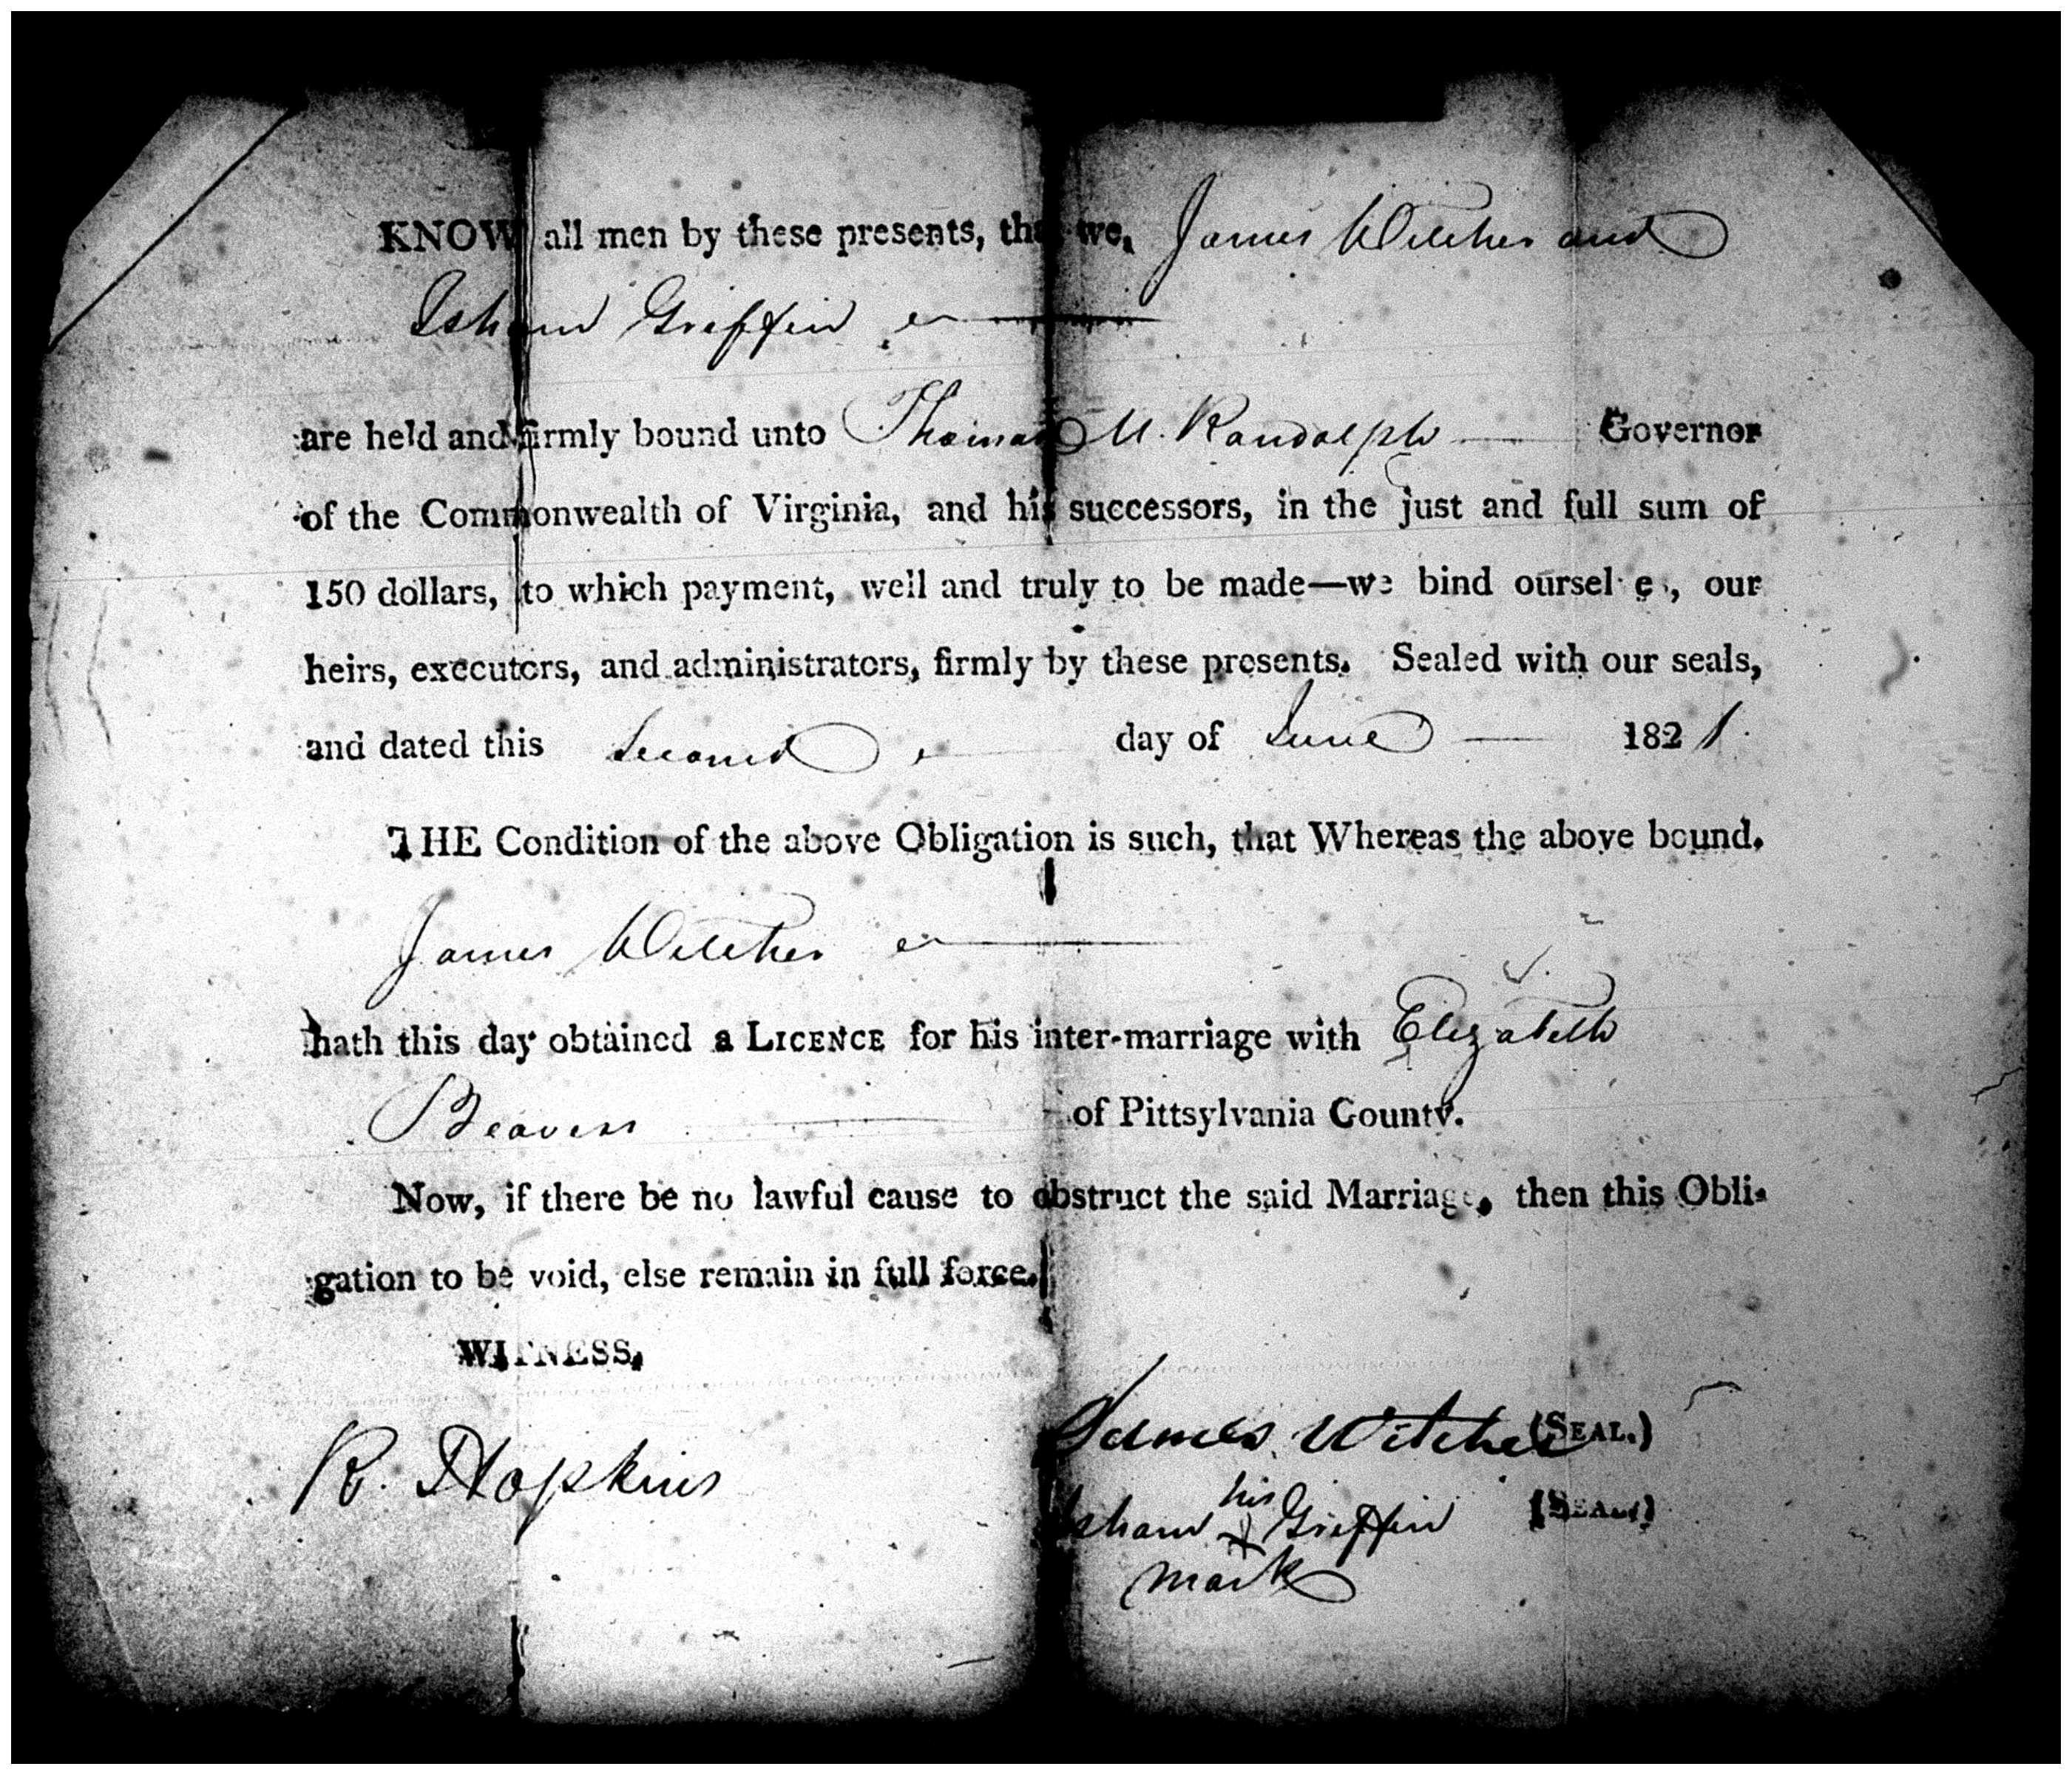 KNOW all men by these presents, that we, James Witcher and
Isham Griffin
are held and firmly bound unto Thomas M. Randolph Governor
of the Commonwealth of Virginia, and his successors, in the just and full sum of
150 dollars, to which payment, well and truly to be made—we bind ourselves, our
heirs, executors, and administrators, firmly by these presents. Sealed with our seals,
and dated this Second day of June 1821.
THE Condition of the above Obligation is such, that Whereas the above bound.
James Witcher
hath this day obtained a LICENCE for his inter-marriage with Elizabeth
Beavers of Pittsylvania County.
Now, if there be no lawful cause to obstruct the said Marriage, then this Obli-
gation to be void, else remain in full force.
WITNESS,
James Witcher (SEAL.)
R. Hopkins
his
Isham + Griffin (SEAL.)
mark